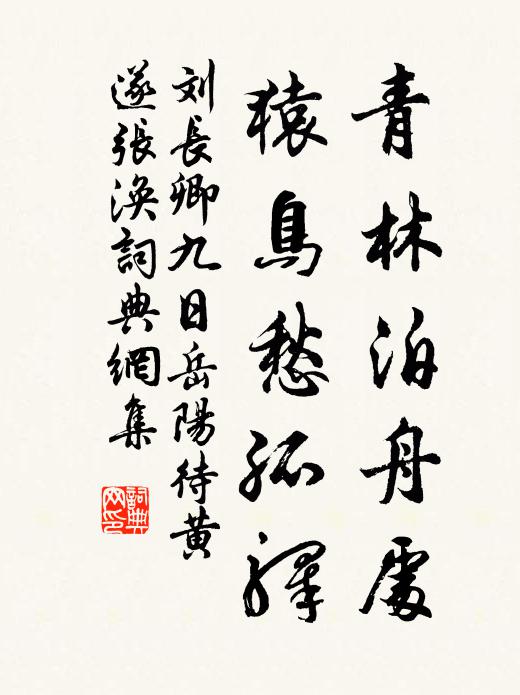 青林泊舟處
猿鳥愁孤驛
刘長卿九日岳陽待黄
遂張渙詞典網集
詞典
网印